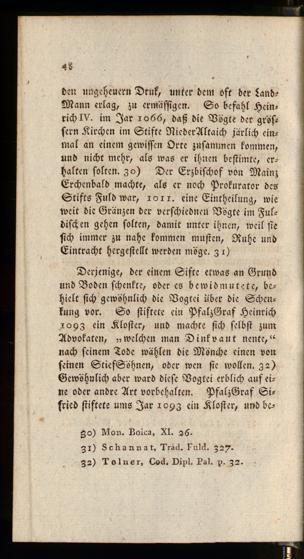 48
den ungeheuern Druk, unter dem oft der Land-
Mann erlag, zu ermässigen. So befahl Hein-
rich IV. im Jar 1066, daß die Vögte der grös-
sern Kirchen im Stifte NiederAltaich järlich ein-
mal an einem gewissen Orte zusammen kommen,
und nicht mehr, als was er ihnen bestimte, er-
halten solten. 30) Der Erzbischof von Mainz
Erchenbald machte, als er noch Prokurator des
Stifts Fuld war, 1011. eine Eintheilung, wie
weit die Gränzen der verschiednen Vögte im Ful-
dischen gehen solten, damit unter ihnen, weil sie
sich immer zu nahe kommen musten, Ruhe und
Eintracht hergestellt werden möge. 31)
Derjenige, der einem Sifte etwas an Grund
und Boden schenkte, oder es bewidmutete, be-
hielt sich gewöhnlich die Vogtei über die Schen-
kung vor. So stiftete ein PfalzGraf Heinrich
1093 ein Kloster, und machte sich selbst zum
Advokaten, „welchen man Dinkvaut nente,“
nach seinem Tode wählen die Mönche einen von
seinen StiefSöhnen, oder wen sie wollen. 32)
Gewöhnlich aber ward diese Vogtei erblich auf ei-
ne oder andre Art vorbehalten. PfalzGraf Si-
fried stiftete ums Jar 1093 ein Kloster, und be-
30) Mon. Boica, XI. 26.
31) Schannat, Trad. Fuld. 327.
32) Tolner, Cod. Dipl. Pal. p. 32.